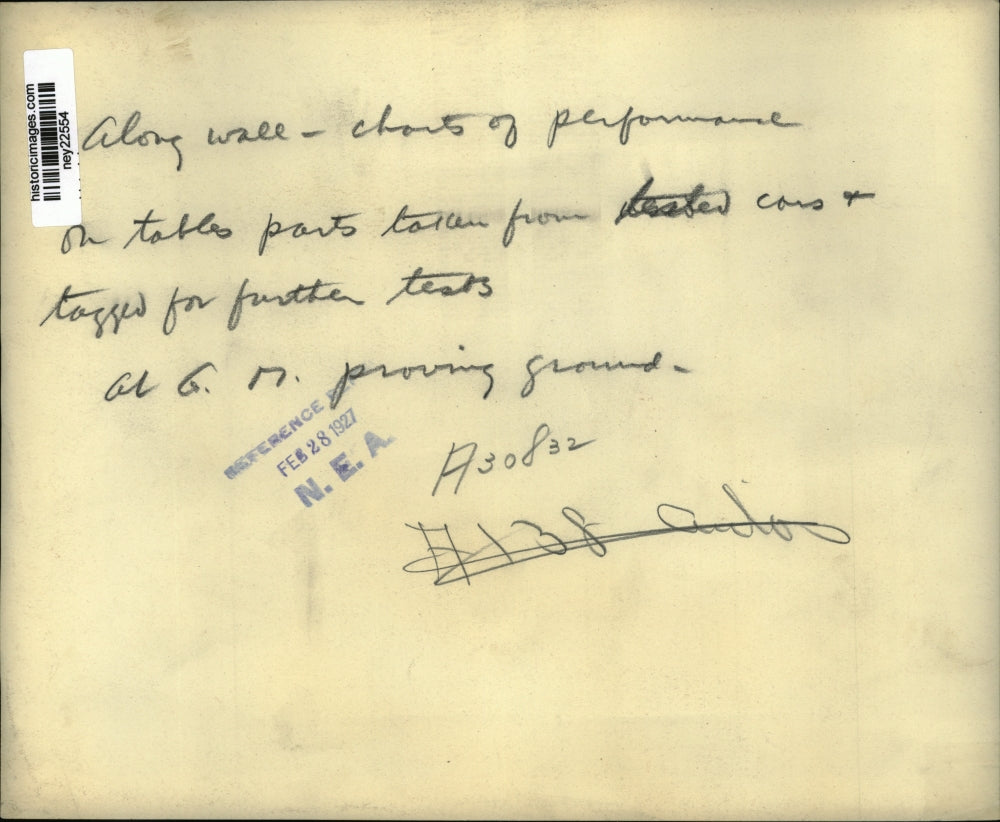 historicimages.com
ney22554
Along wall - charts of performance
on tables parts taken from tested cars +
tagged for further tests
at G. M. proving ground -
REFERENCE
FEB 28 1927
N. E. A.
A30832
#138 autos